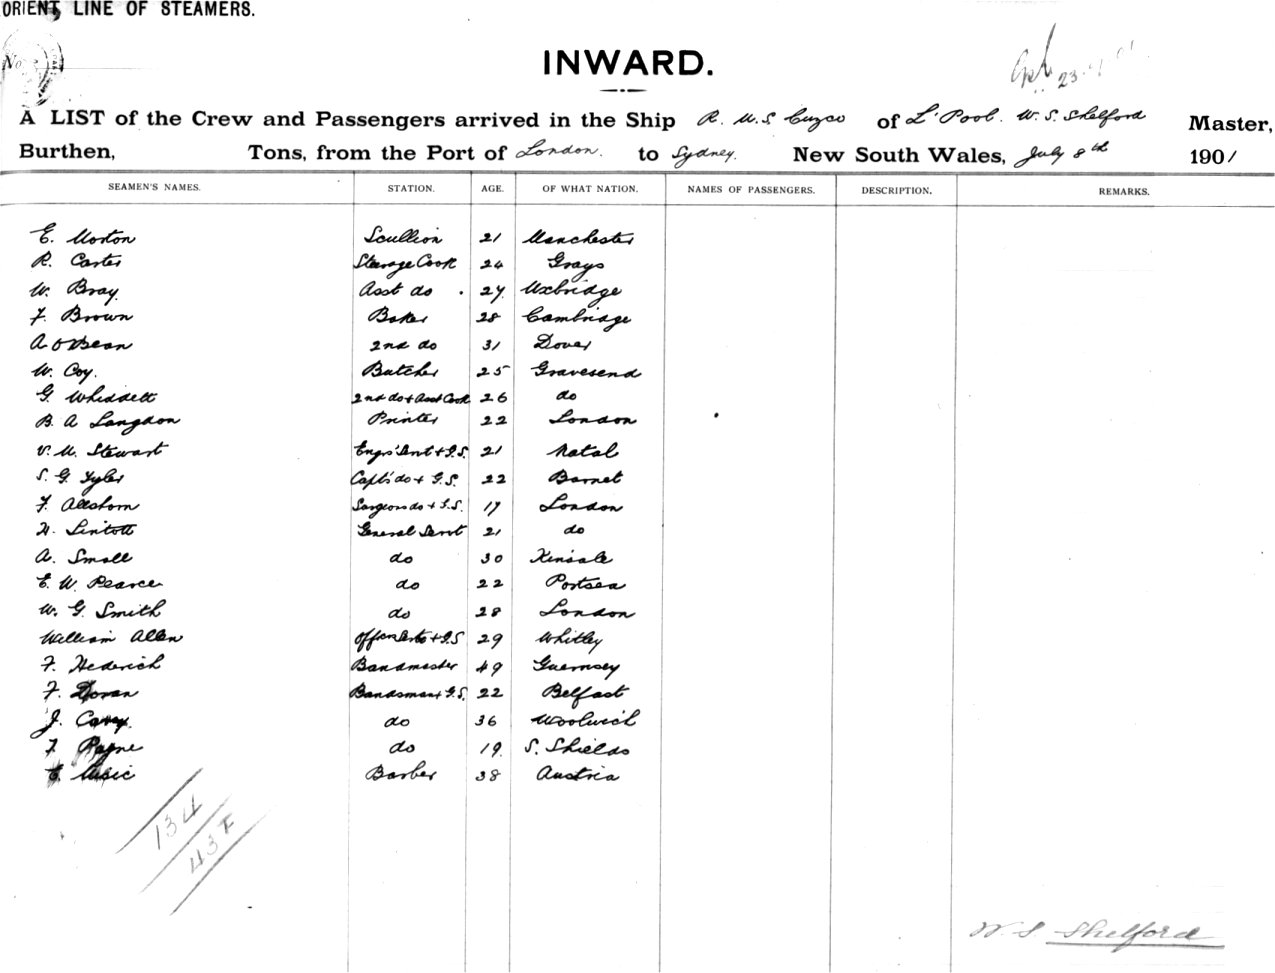 ORIENT LINE OF STEAMERS.
No.
INWARD.
A LIST of the Crew and Passengers arrived in the Ship R. M. S Cuzco of L'Pool. W. S. Shelford Master,
Burthen, Tons, from the Port of London. to Sydney. New South Wales, July 8th 1901
SEAMEN'S NAMES. STATION. AGE. OF WHAT NATION. NAMES OF PASSENGERS. DESCRIPTION. REMARKS.
E. Morton Scullion 21 Manchester
R. Carter Steerage Cook 24 Grays
W. Bray. Asst do 27 Uxbridge
F. Brown Baker 28 Cambridge
A O'Dean 2nd do 31 Dover
W. Coy. Butcher 25 Gravesend
G. Whiddett 2nd do & Asst Cook 26 do
B. A Langdon Printer 22 London
V. M. Stewart Engrs' Servt & G.S. 21 Natal
S. G. Tyler Capt's do & G.S. 22 Barnet
F. Allshorn Surgeons do & G.S. 17 London
H. Lintott General Servt 21 do
A. Small do 30 Kinsale
E. W. Pearce do 22 Portsea
W. G. Smith do 28 London
William Allen & G.S 29 Whitley
F. Hederich Bandmaster 49 Guernsey
F. Doran Bandsman & G.S. 22 Belfast
J. Carey. do 36 Woolwich
F Payne do 19 S. Shields
E. Barber 38 Austria
134
W. S Shelford